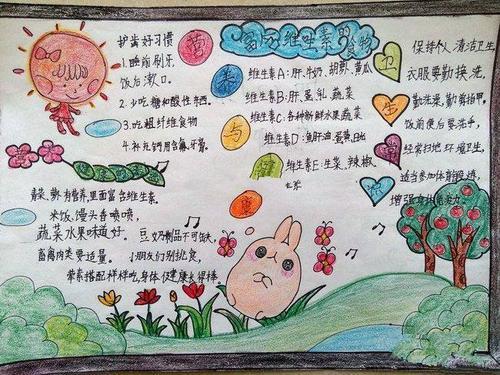 护齿好习惯
1.睡前刷牙
饭后漱口。
2.少吃糖和酸性东西。
3.吃粗纤维食物
4.补充钙用含氟牙膏。
营
养
与
健
康
富含维生素的食物
维生素A:肝、牛奶、胡萝卜、黄瓜
维生素B:肝、蛋、乳、蔬菜
维生素C:各种新鲜水果蔬菜
维生素D:鱼肝油、蛋黄、日光
维生素E:生菜、辣椒
卫
生
保持个人清洁卫生
衣服要勤换洗,
勤洗澡,勤剪指甲,
饭前便后要洗手,
经常扫地环境卫生,
适当参加体育锻炼,
有营养,里面富含维生素。
米饭、馒头香喷喷,
蔬菜水果味道好。
豆奶制品不可缺,
畜禽肉类要适量。
小朋友们别挑食,
荤素搭配样样吃,身体健康长得棒。